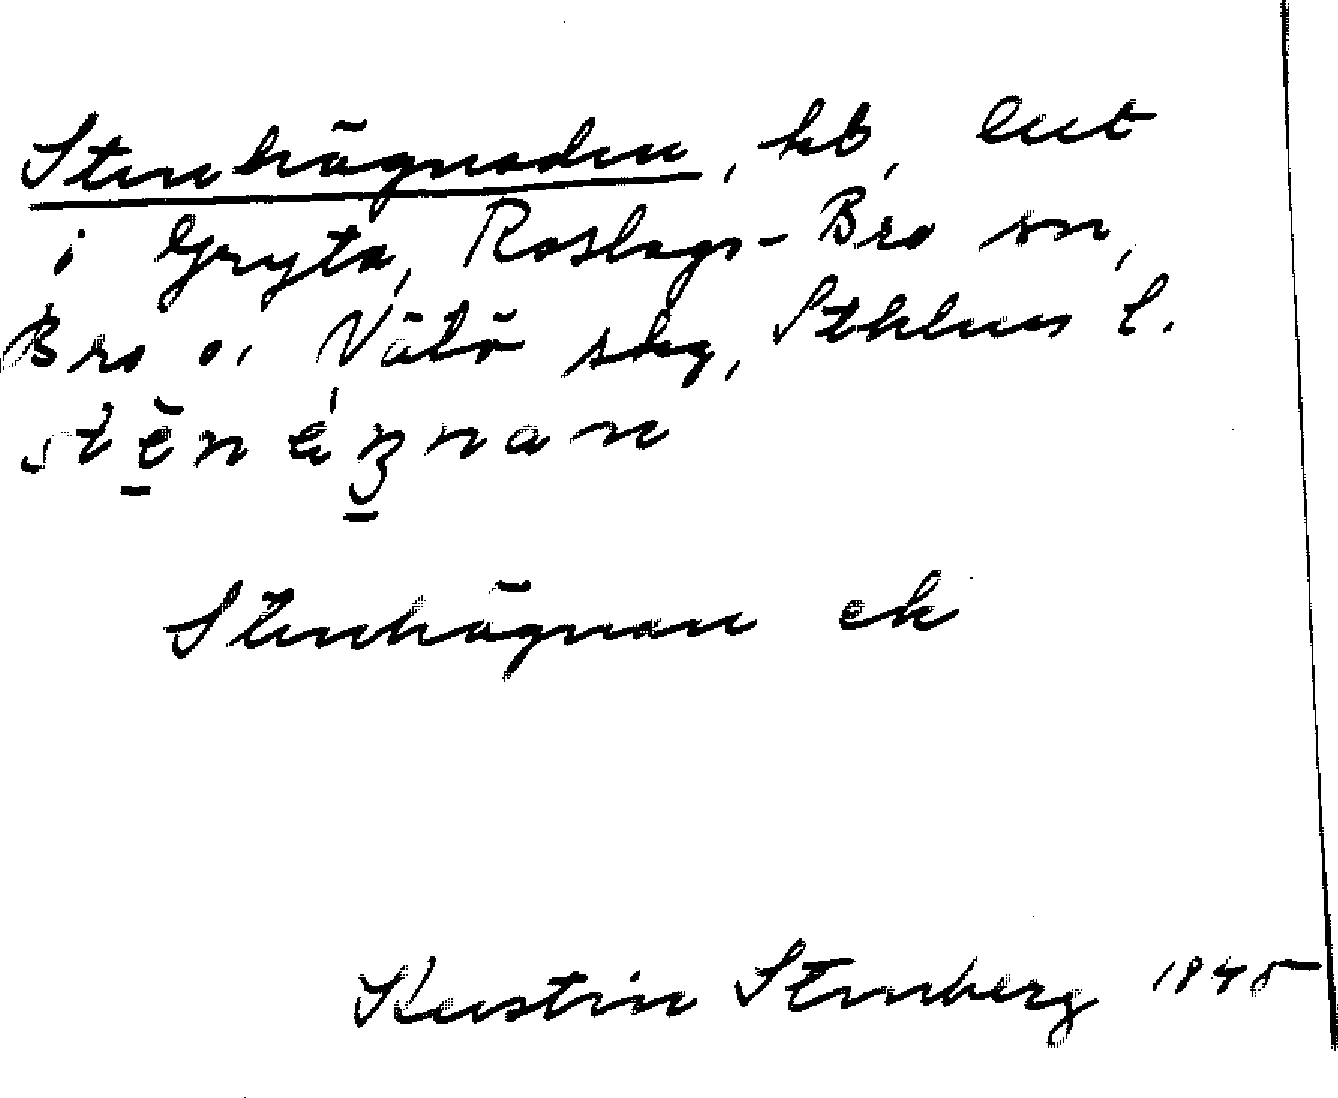 Stenhägnaden, hb, ent
i Gryta, Roslags-Bro sn,
Bro o. Vätö skg, Sthlms l.
stēnägnan
Stenhägnan ek
Kerstin Stenberg 1945